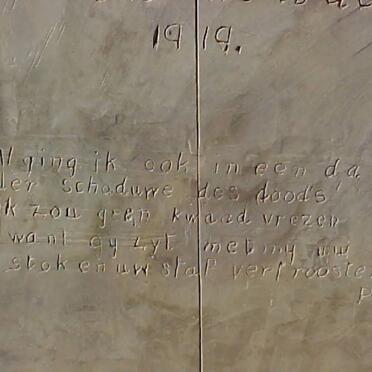 1919.
Al ging ik ook in een da
der schaduwe des doods
ik zou geen kwaad vrezen
want gy zyt met my uw
stok en uw staf vertrooste
P